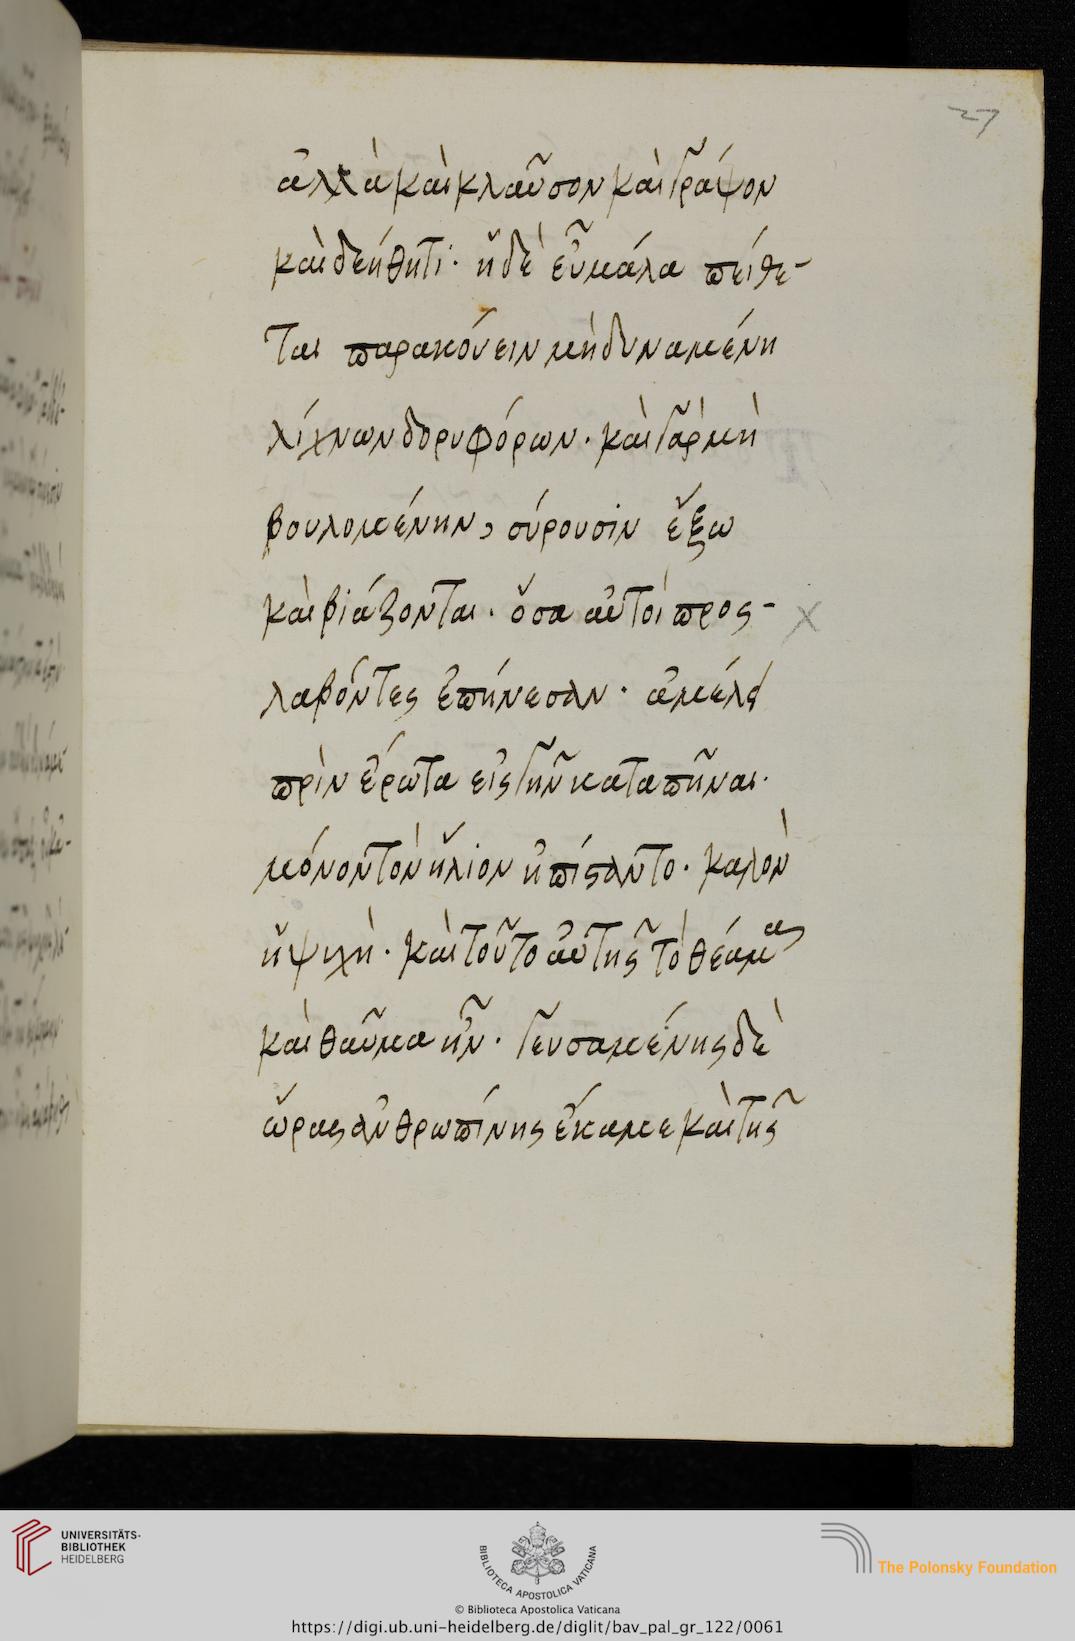 27
ἀλλὰ καὶ κλαῦσον καὶ γράψον
καὶ δεήθητι· ἡ δὲ εὖ μάλα πείθε-
ται παρακούειν μὴ δυναμένη
λίχνων δορυφόρων. καὶ γὰρ μὴ
βουλομένην, σύρουσιν ἔξω
καὶ βιάζονται. ὅσα αὐτοὶ προς-
λαβόντες ἐπήνεσαν. ἀμέλει
πρὶν ἔρωτα εἰς γῆν καταπτῆναι.
μόνον τὸν ἥλιον ἠπίσταντο. καλὸν
ἡ ψυχὴ. καὶ τοῦτο αὐτῆς τὸ θέαμα
καὶ θαῦμα ἦν. γευσαμένης δὲ
ὥρας ἀνθρωπίνης ἔκαμε καὶ τῆς
UNIVERSITÄTS-
BIBLIOTHEK
HEIDELBERG
BIBLIOTECA APOSTOLICA VATICANA
© Biblioteca Apostolica Vaticana
The Polonsky Foundation
https://digi.ub.uni-heidelberg.de/diglit/bav_pal_gr_122/0061